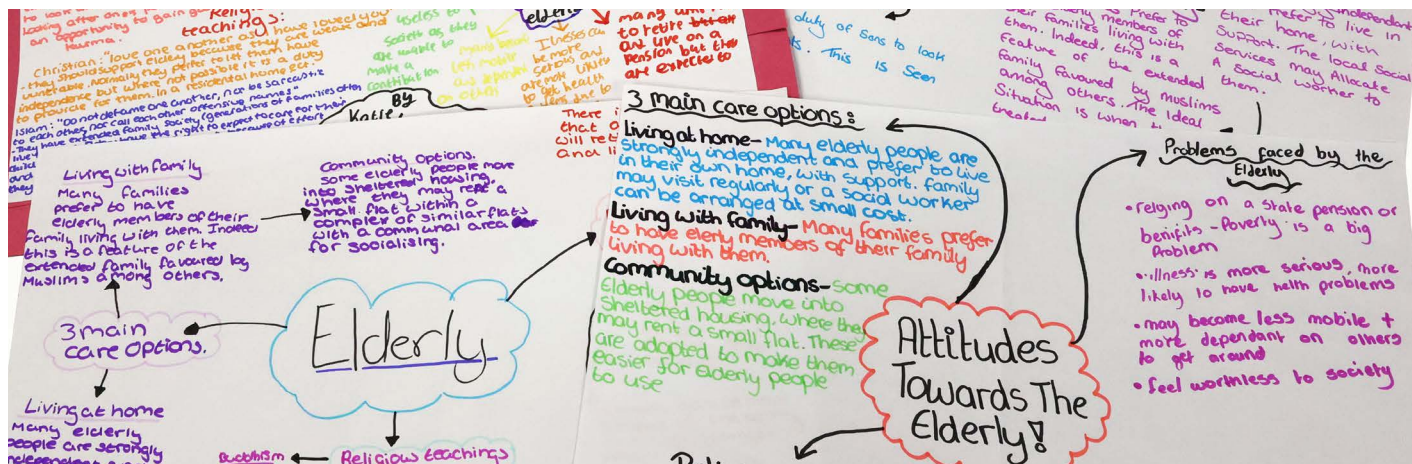 to look
Looking after ones
an opportunity to gain
Religio
teachings:
Christian: "love one another as I have loved you"
- they should support elderley because they are weak and
independence but where not possible it is a duty
to provide for them. In a residental home etc
Islam: "Do not defame one another, nor be sarcastic
to each other, nor call each other offensive names"
useless to
society as they
are unable to
make a
contribution
on others
By
Katie,
elderly
Illnesses can
be more
serious and
many
to retire
and live on a
pension but they
are expected to
There i
that o
will ret
and li
duty of sons to look
ts. This is seen
prefer to
members of
their families living with
them. Indeed, this is a
feature of the extended
family favoured by muslims
among others. The ideal
Situation is when
independent
prefer to live in
their home, with
support. The local social
Services may Allocate
A Social worker to
them.
Living with family
Many families
prefer to have
elderly members of their
family living with them. Indeed
this is a feature of the
extended family favoured by
Muslims among others.
Community Options.
some elderly people move
into sheltered housing,
where they may rent a
small flat within a
complex of similar flats
with a communal area
for socialising.
3 main
care options.
Elderly
Living at home
Many elderly
people are strongly
independent
Buddhism
Religious teachings
3 main care options:
Living at home- Many elderly people are
strongly independent and prefer to live
in their own home, with support. family
may visit regularly or a social worker
can be arranged at small cost.
Living with family- Many families prefer
to have elerly members of their family
living with them.
Community options- some
Elderly people move into
Sheltered housing, where they
may rent a small flat. These
are adapted to make them
easier for elderly people
to use
Attitudes
Towards The
Elderly!
Problems faced by the
Elderly
• relging on a state pension or
benifits - Poverty is a big
Problem
• illness is more serious, more
likely to have helth problems
• may become less mobile +
more dependant on others
to get around
• feel worthless to society